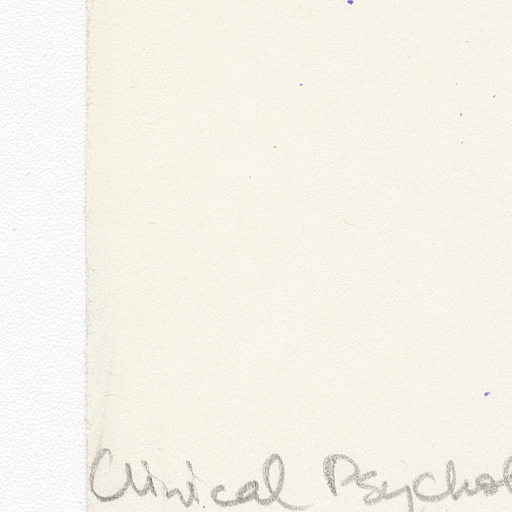 Clinical Psychol